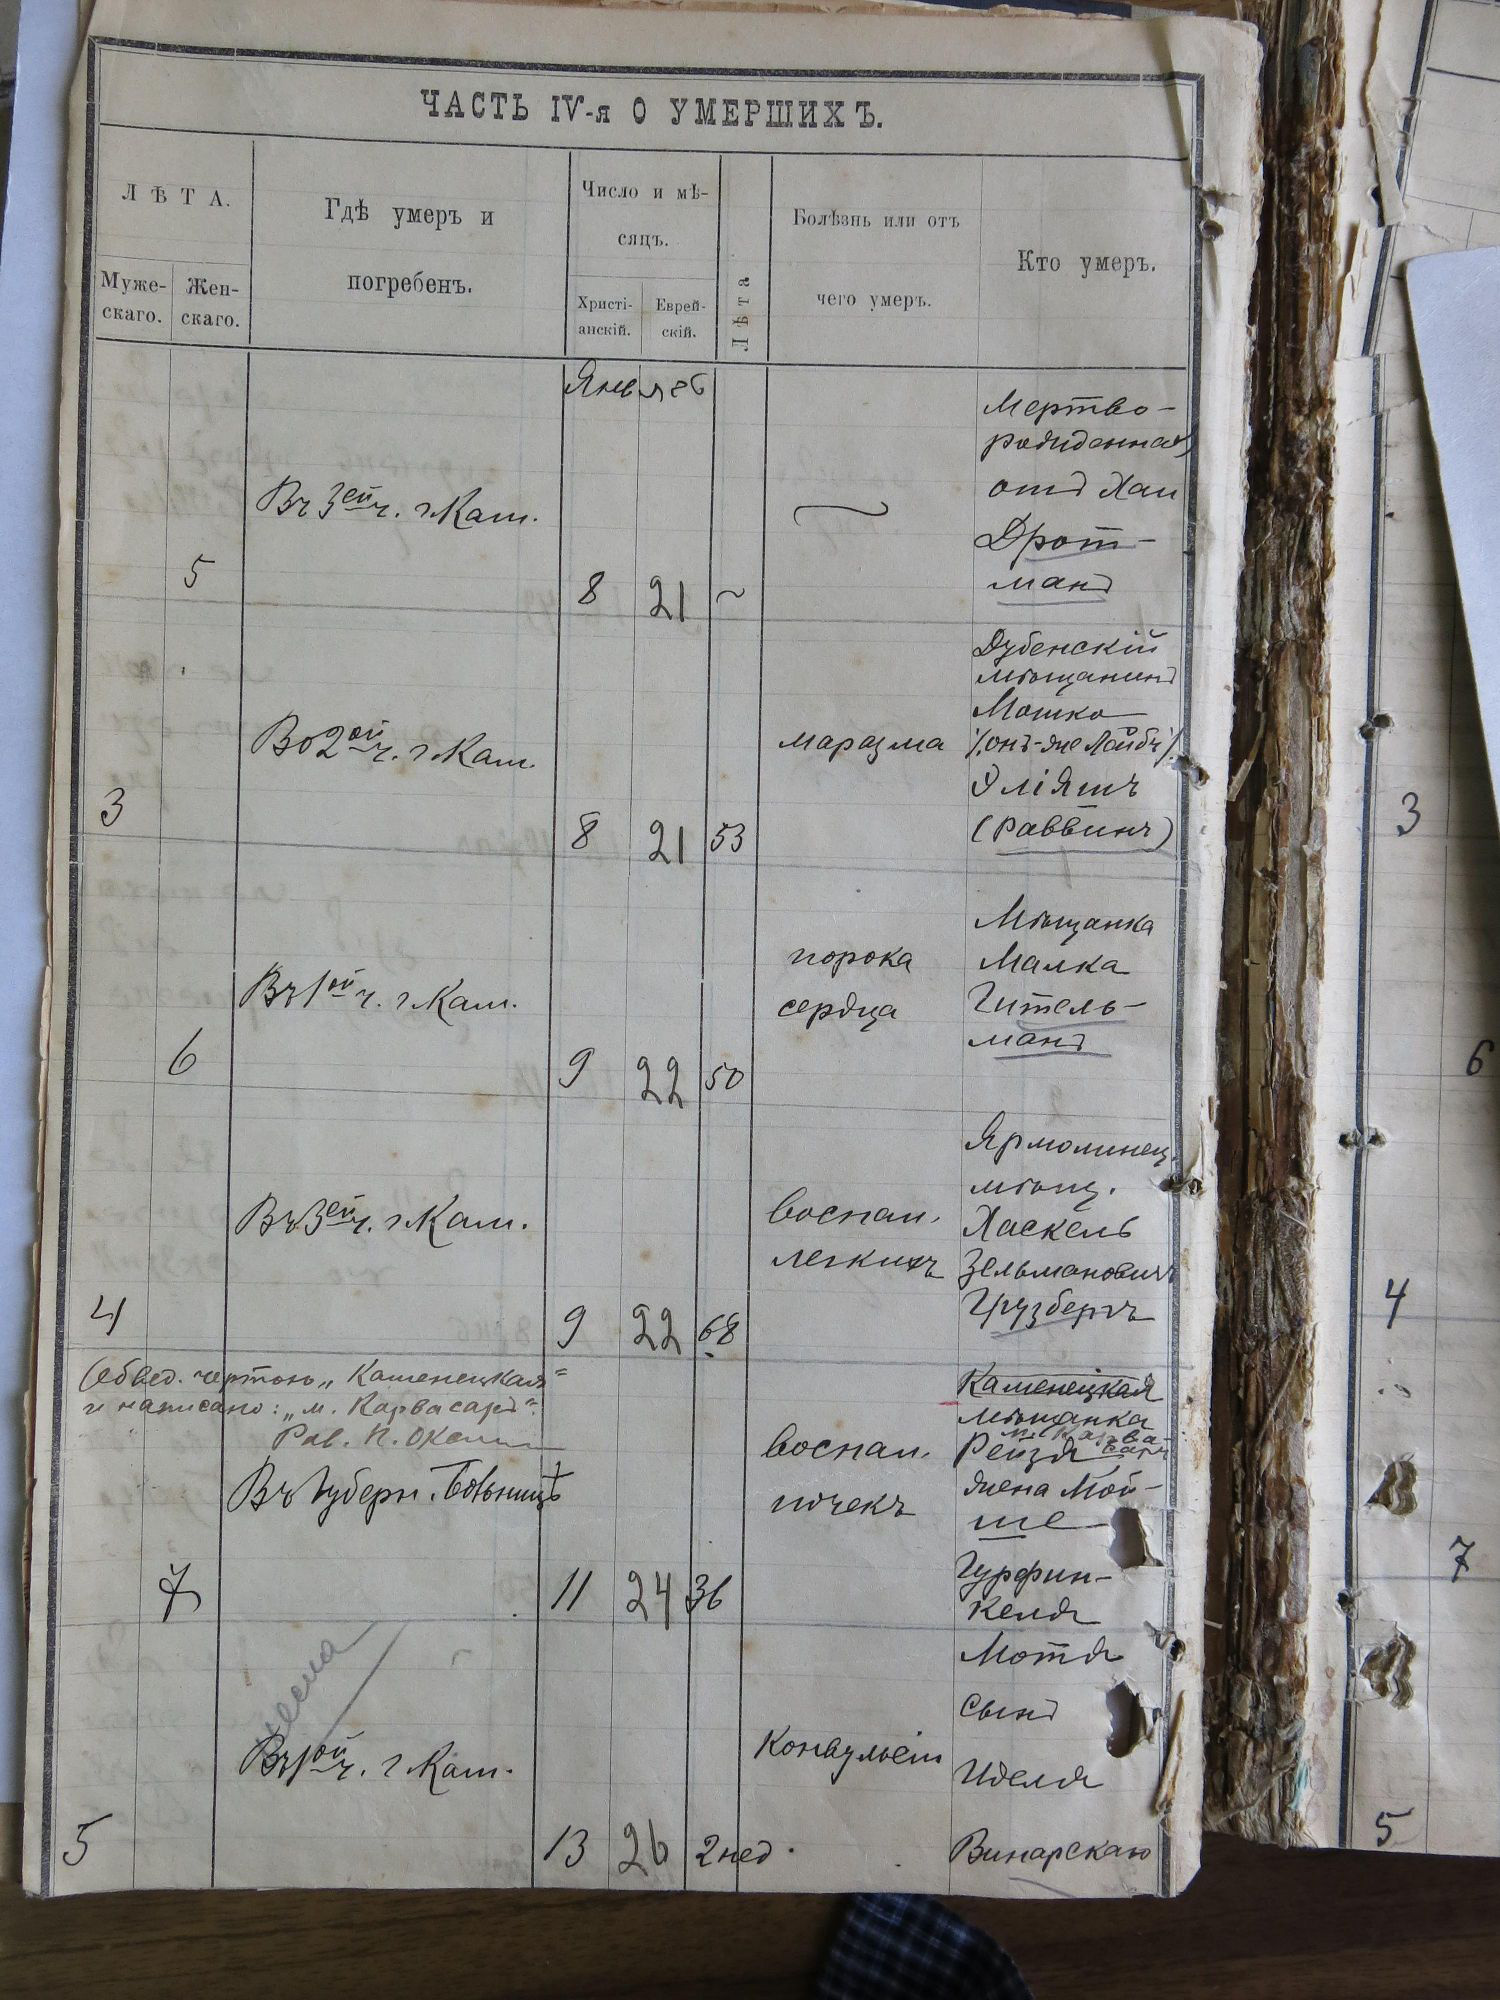 ЧАСТЬ IV-я О УМЕРШИХЪ.
ЛѢТА.
Муже-
скаго.
Жен-
скаго.
Гдѣ умеръ и
погребенъ.
Число и мѣ-
сяцъ.
Христі-
анскій.
Еврей-
скій.
Лѣта
Болѣзнь или отъ
чего умеръ.
Кто умеръ.
Въ 3ей ч. г Кам.
5
8
21
Мертво-
рожденная
отъ Хаи
Дрот-
манъ
Во 2ой ч. г. Кам.
3
8
21
53
маразма
Дубенскій
мѣщанинъ
Мошко
/онъ-же Лейбъ/
Уліяшъ
(Раввинъ)
Въ 1ой ч. г. Кам.
6
9
22
50
порока
сердца
Мѣщанка
Малка
Гитель-
манъ
Въ 3ей ч. г Кам.
4
9
22
68
воспал.
легкихъ
Ярмолинец.
мѣщ.
Хаскель
Зельмановичъ
Грузбергъ
(обвед. чертою „Каменецкая"
и написано: „м. Карвасаръ".
Рав.
Въ Губерн. Больницѣ
7
11
24
36
воспал.
почекъ
Каменецкая
мѣщанка
м. Карва-
саръ
Рейзя
жена Мой-
ше
Гурфин-
келя
Въ 1ой ч. г Кам.
5
13
26
2 нед.
Конвульсіи
Мотя
сынъ
Иделя
Винарскаго
3
6
4
7
5